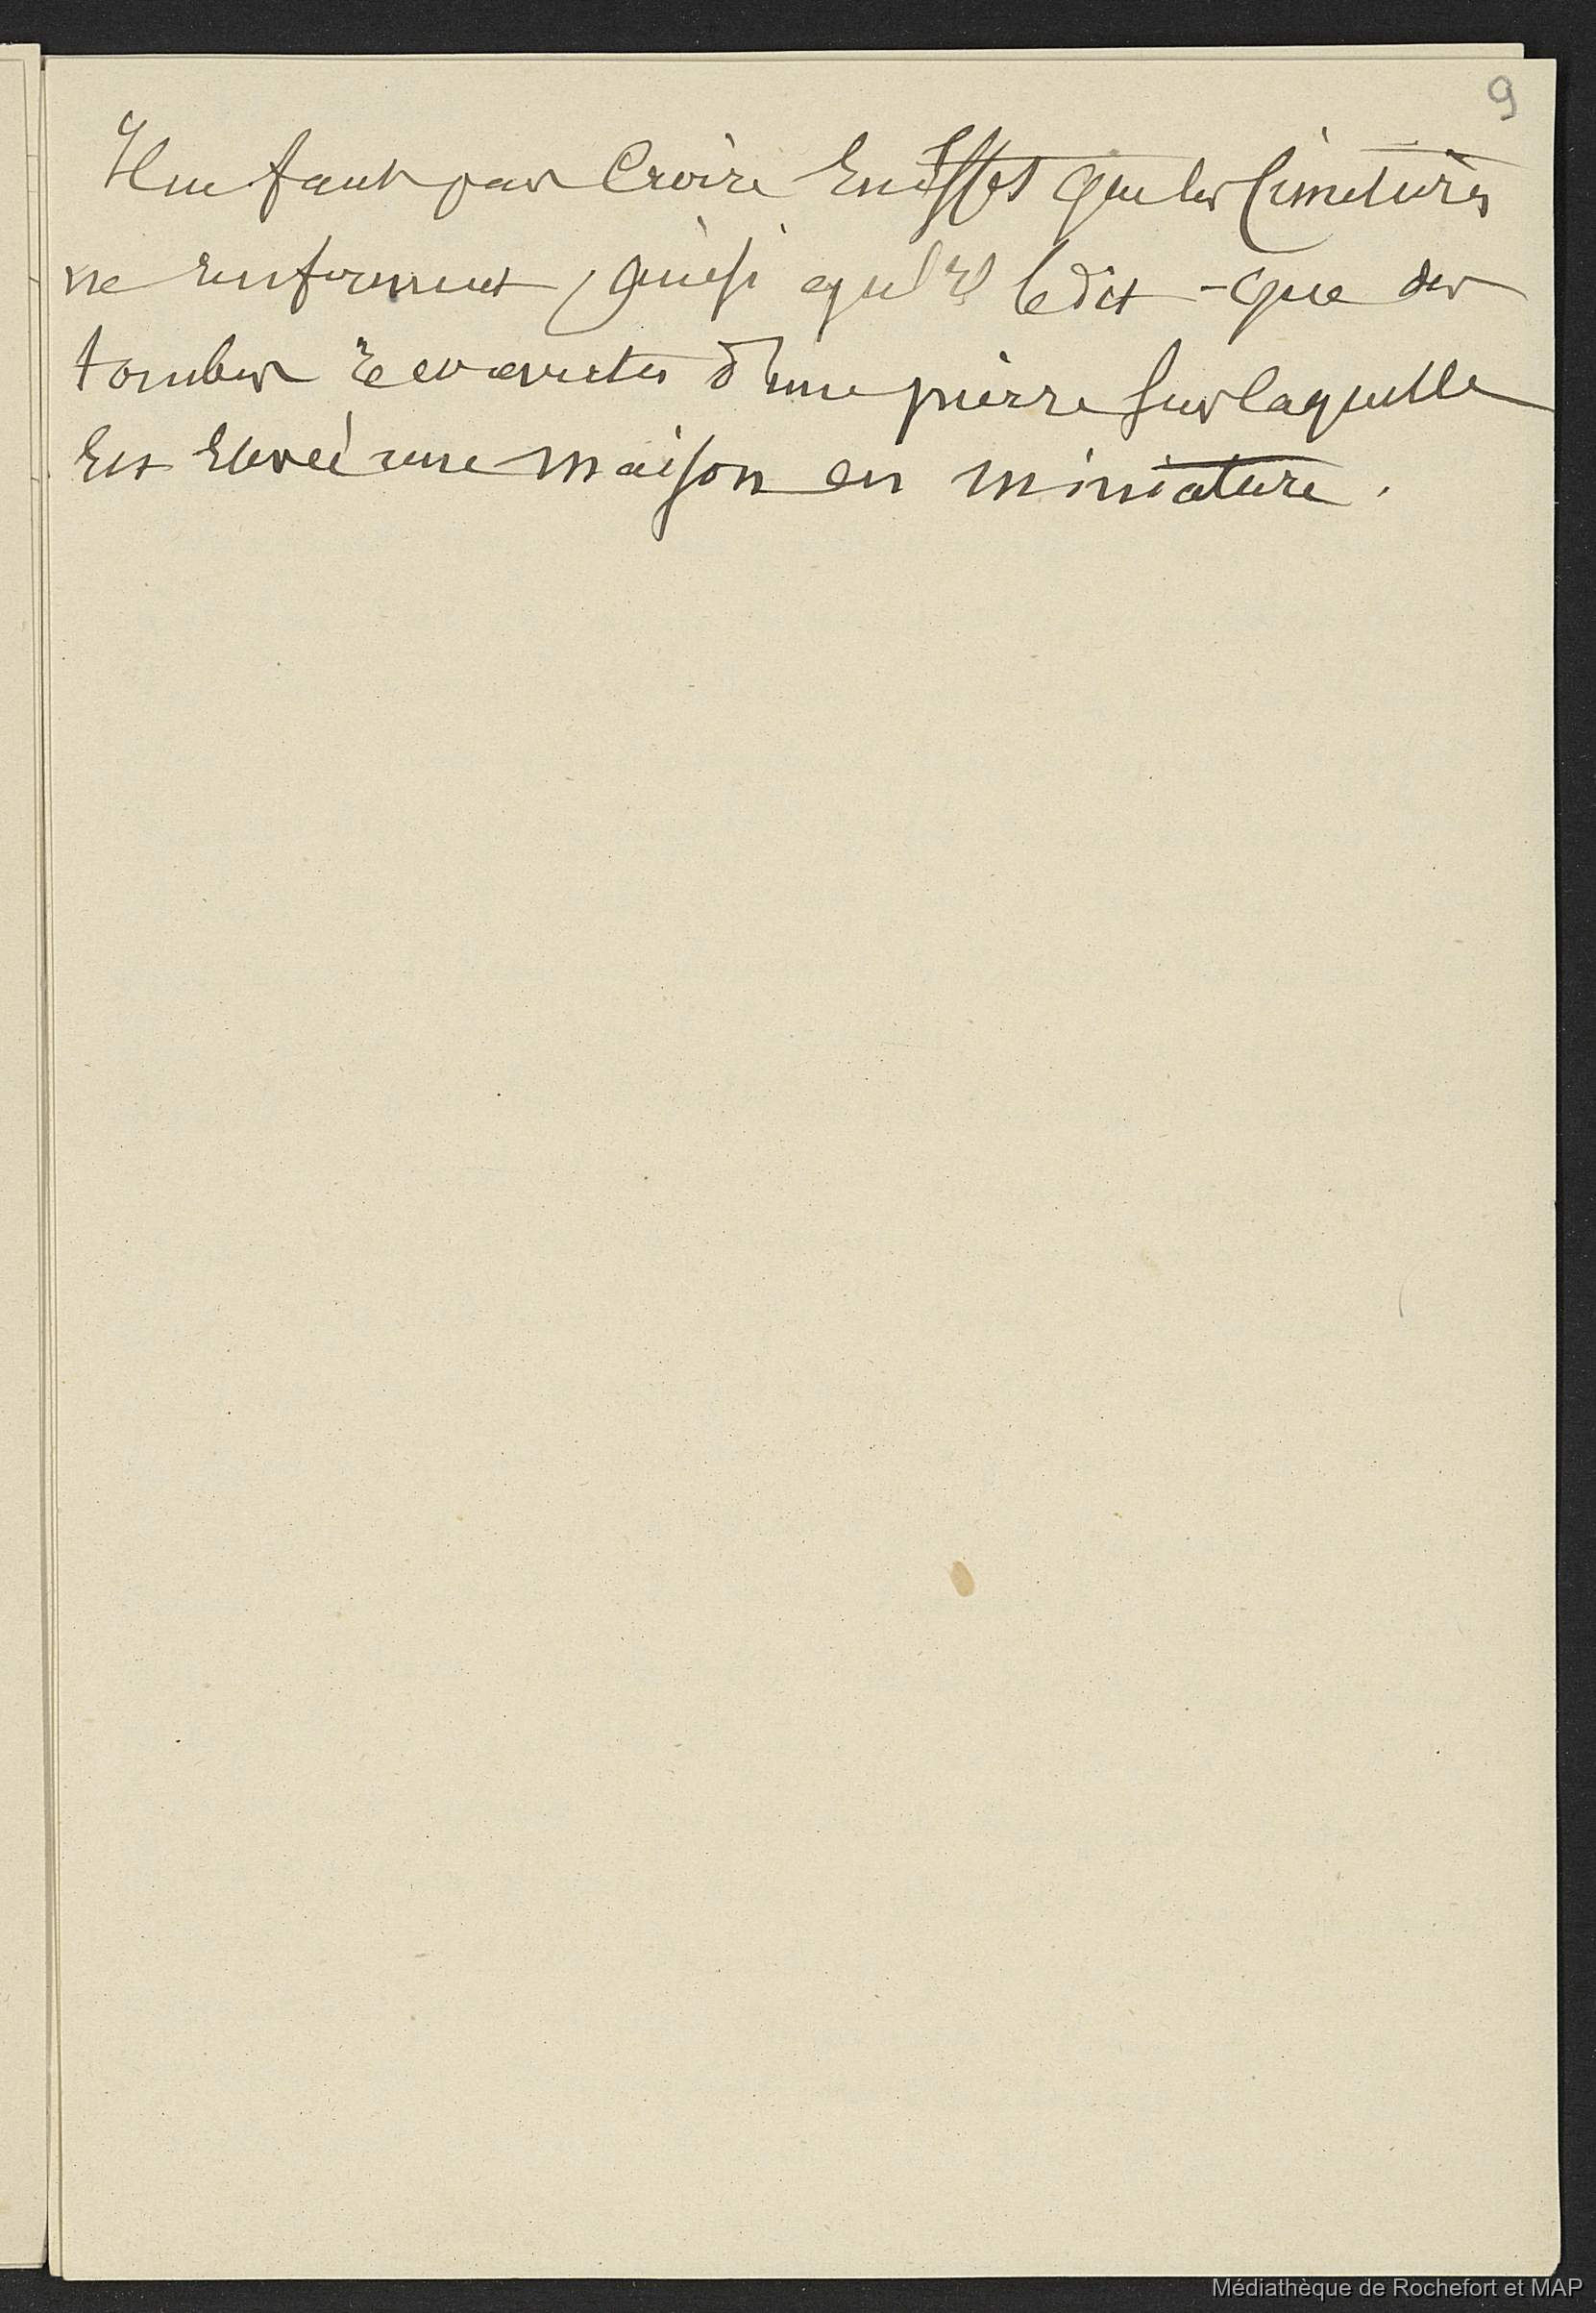 9
Il ne faut pas Croire En Effet que les Cimetières
ne renferment, ainsi qu'il le dit - que des
tombes recouvertes d'une pierre sur laquelle
Est Elevée une maison en miniature.
Médiathèque de Rochefort et MAP